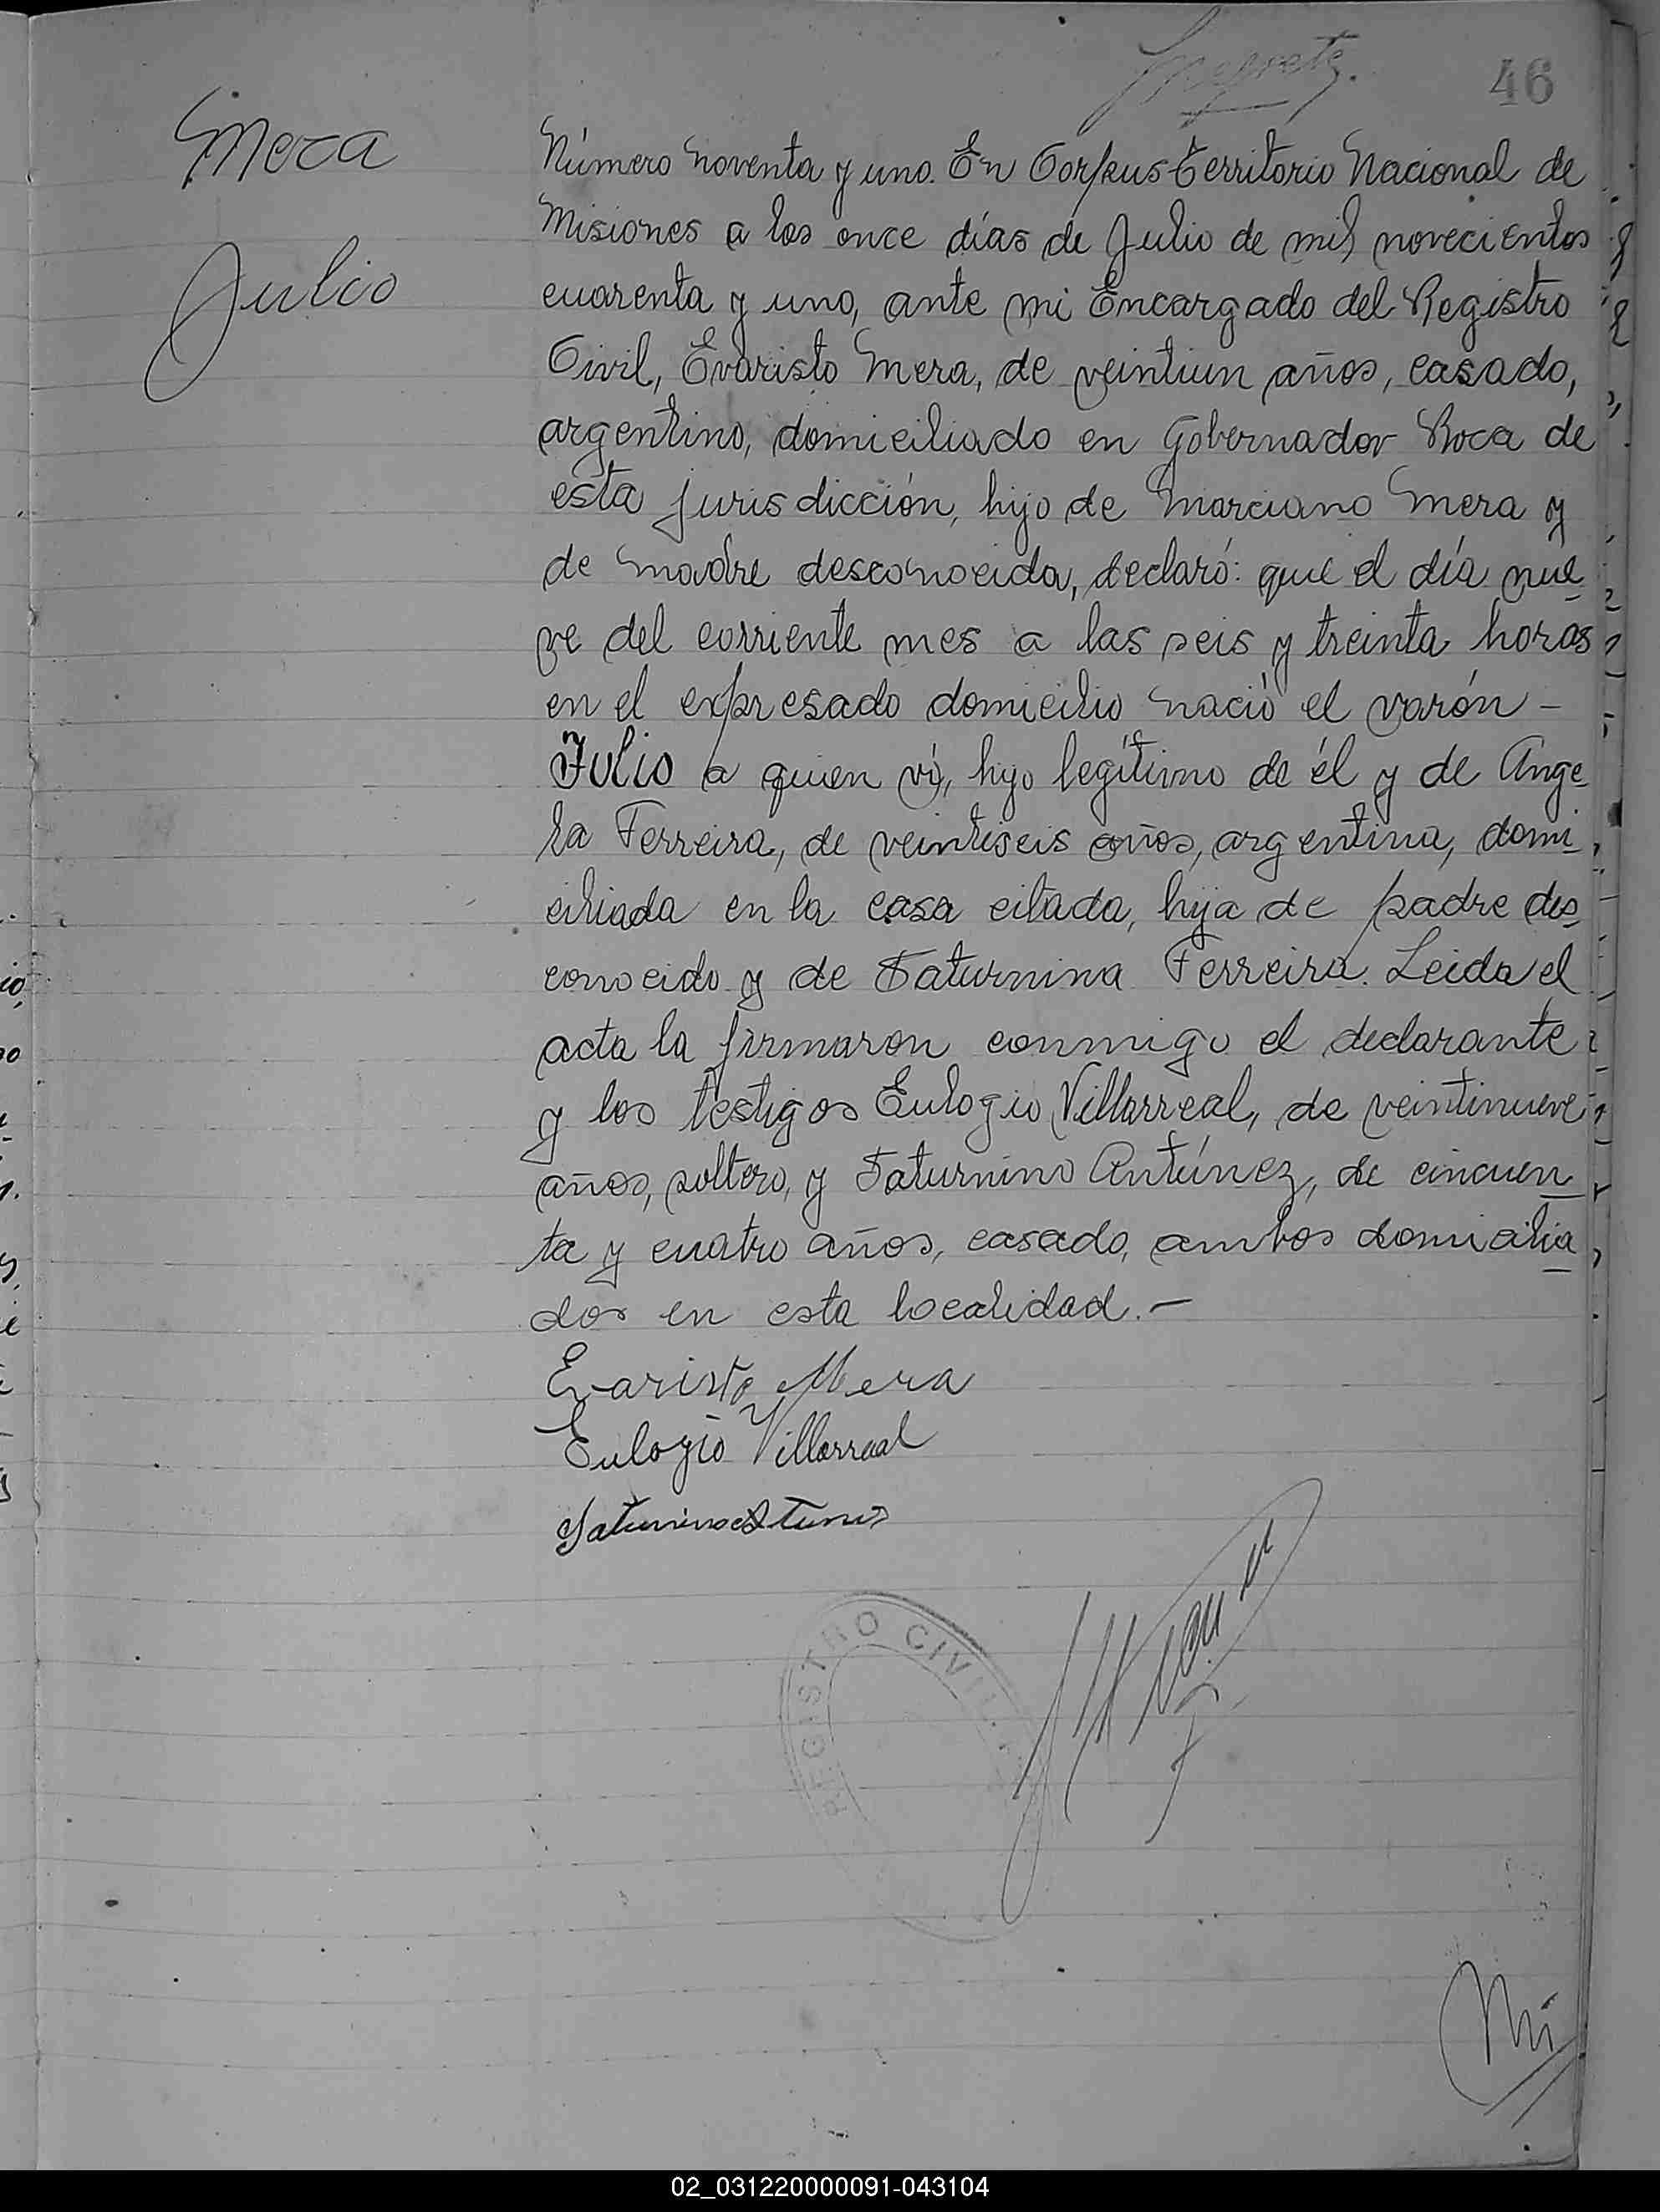 46
Mera
Julio
Número noventa y uno. En Corpus Territorio Nacional de
Misiones a los once días de Julio de mil novecientos
cuarenta y uno, ante mi Encargado del Registro
Civil, Evaristo Mera, de veintiun años, casado,
argentino, domiciliado en Gobernador Roca de
esta jurisdicción, hijo de Marciano Mera y
de madre desconocida, declaró: que el día nue
ve del corriente mes a las seis y treinta horas
en el expresado domicilio nació el varón -
Julio a quien ví, hijo legítimo de él y de Ange
la Ferreira, de veintiseis años, argentina, domi
ciliada en la casa citada, hija de padre des
conocido y de Saturnina Ferreira. Leida el
acta la firmaron conmigo el declarante
y los testigos Eulogio Villarreal, de veintinueve
años, soltero, y Saturnino Antúnez, de cincuen
ta y cuatro años, casado, ambos domicilia
dos en esta localidad.-
Evaristo Mera
Eulogio Villarreal
Saturnino
REGISTRO CIVIL
02_031220000091-043104